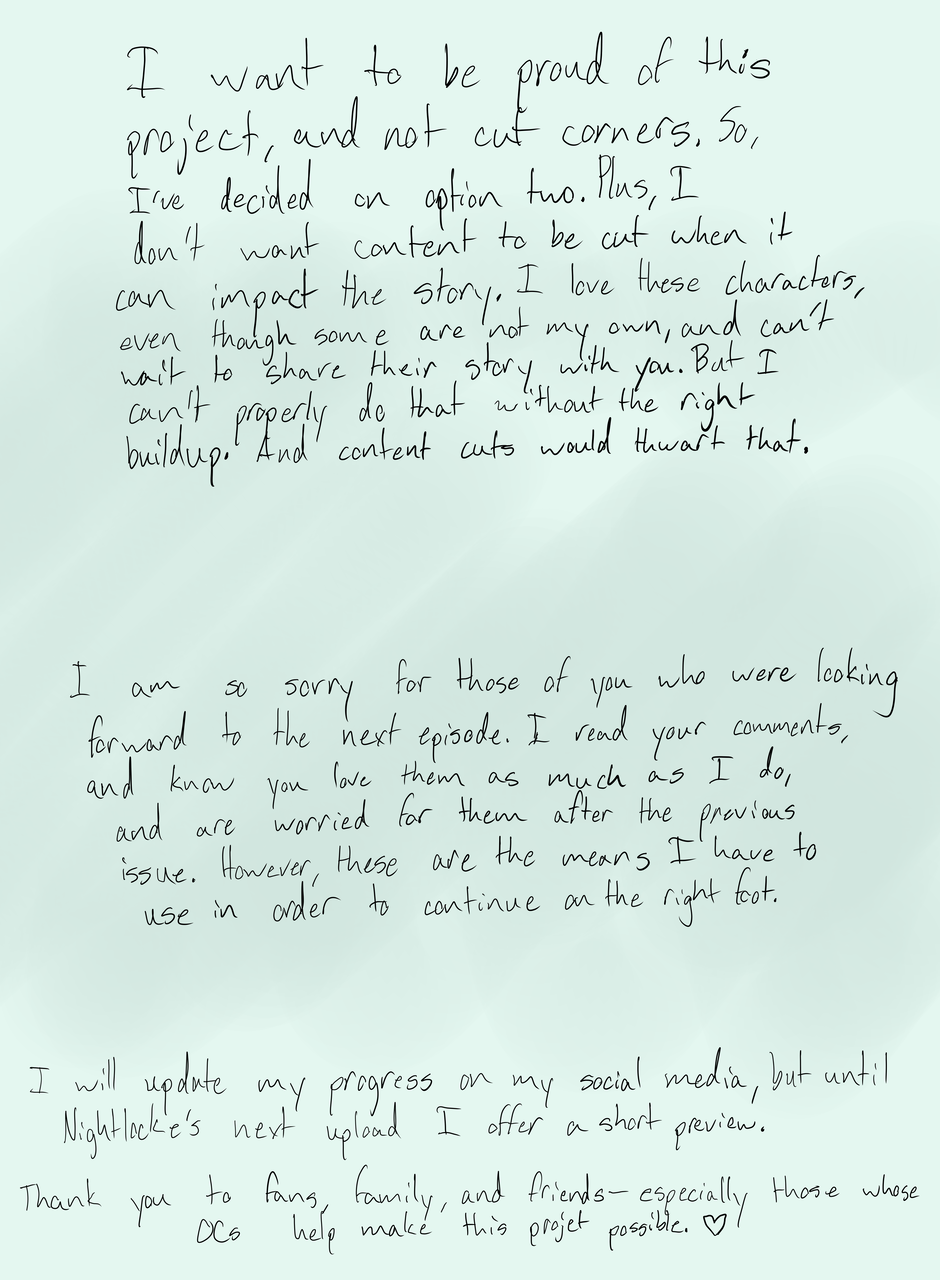 I want to be proud of this
project, and not cut corners. So,
I've decided on option two. Plus, I
don't want content to be cut when it
can impact the story. I love these characters,
even though some are not my own, and can't
wait to share their story with you. But I
can't properly do that without the right
buildup. And content cuts would thwart that.
I am so sorry for those of you who were looking
forward to the next episode. I read your comments,
and know you love them as much as I do,
and are worried for them after the previous
issue. However, these are the means I have to
use in order to continue on the right foot.
I will update my progress on my social media, but until
Nightlocke's next upload I offer a short preview.
Thank you to fans, family, and friends— especially those whose
OCs help make this projet possible. ♡